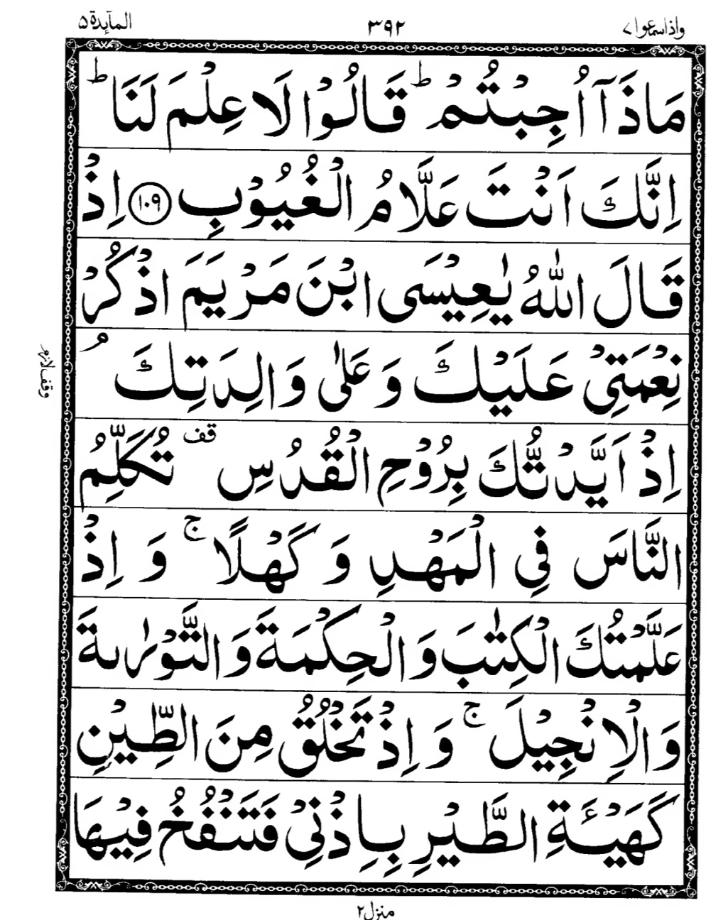 واذاسمعوا ۷ ۳۹۲ المآیدة ۵
مَاذَاۤ اُجِبْتُمْ ؕ قَالُوْا لَا عِلْمَ لَنَا ؕ
اِنَّكَ اَنْتَ عَلَّامُ الْغُيُوْبِ ﴿۱۰۹﴾ اِذْ
قَالَ اللّٰهُ يٰعِيْسَى ابْنَ مَرْيَمَ اذْكُرْ
نِعْمَتِيْ عَلَيْكَ وَعَلٰى وَالِدَتِكَ ۘ
وقف لازم
اِذْ اَيَّدْتُّكَ بِرُوْحِ الْقُدُسِ قف تُكَلِّمُ
النَّاسَ فِي الْمَهْدِ وَكَهْلًا ۚ وَاِذْ
عَلَّمْتُكَ الْكِتٰبَ وَالْحِكْمَةَ وَالتَّوْرٰىةَ
وَالْاِنْجِيْلَ ۚ وَاِذْ تَخْلُقُ مِنَ الطِّيْنِ
كَهَيْـَٔةِ الطَّيْرِ بِاِذْنِيْ فَتَنْفُخُ فِيْهَا
منزل ۲